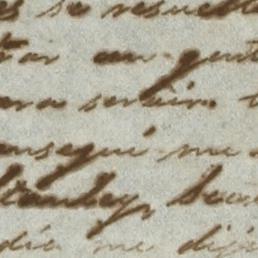 se resuelt
un gent
ara servir.
onsegui me
Stanley, 
dia me dij